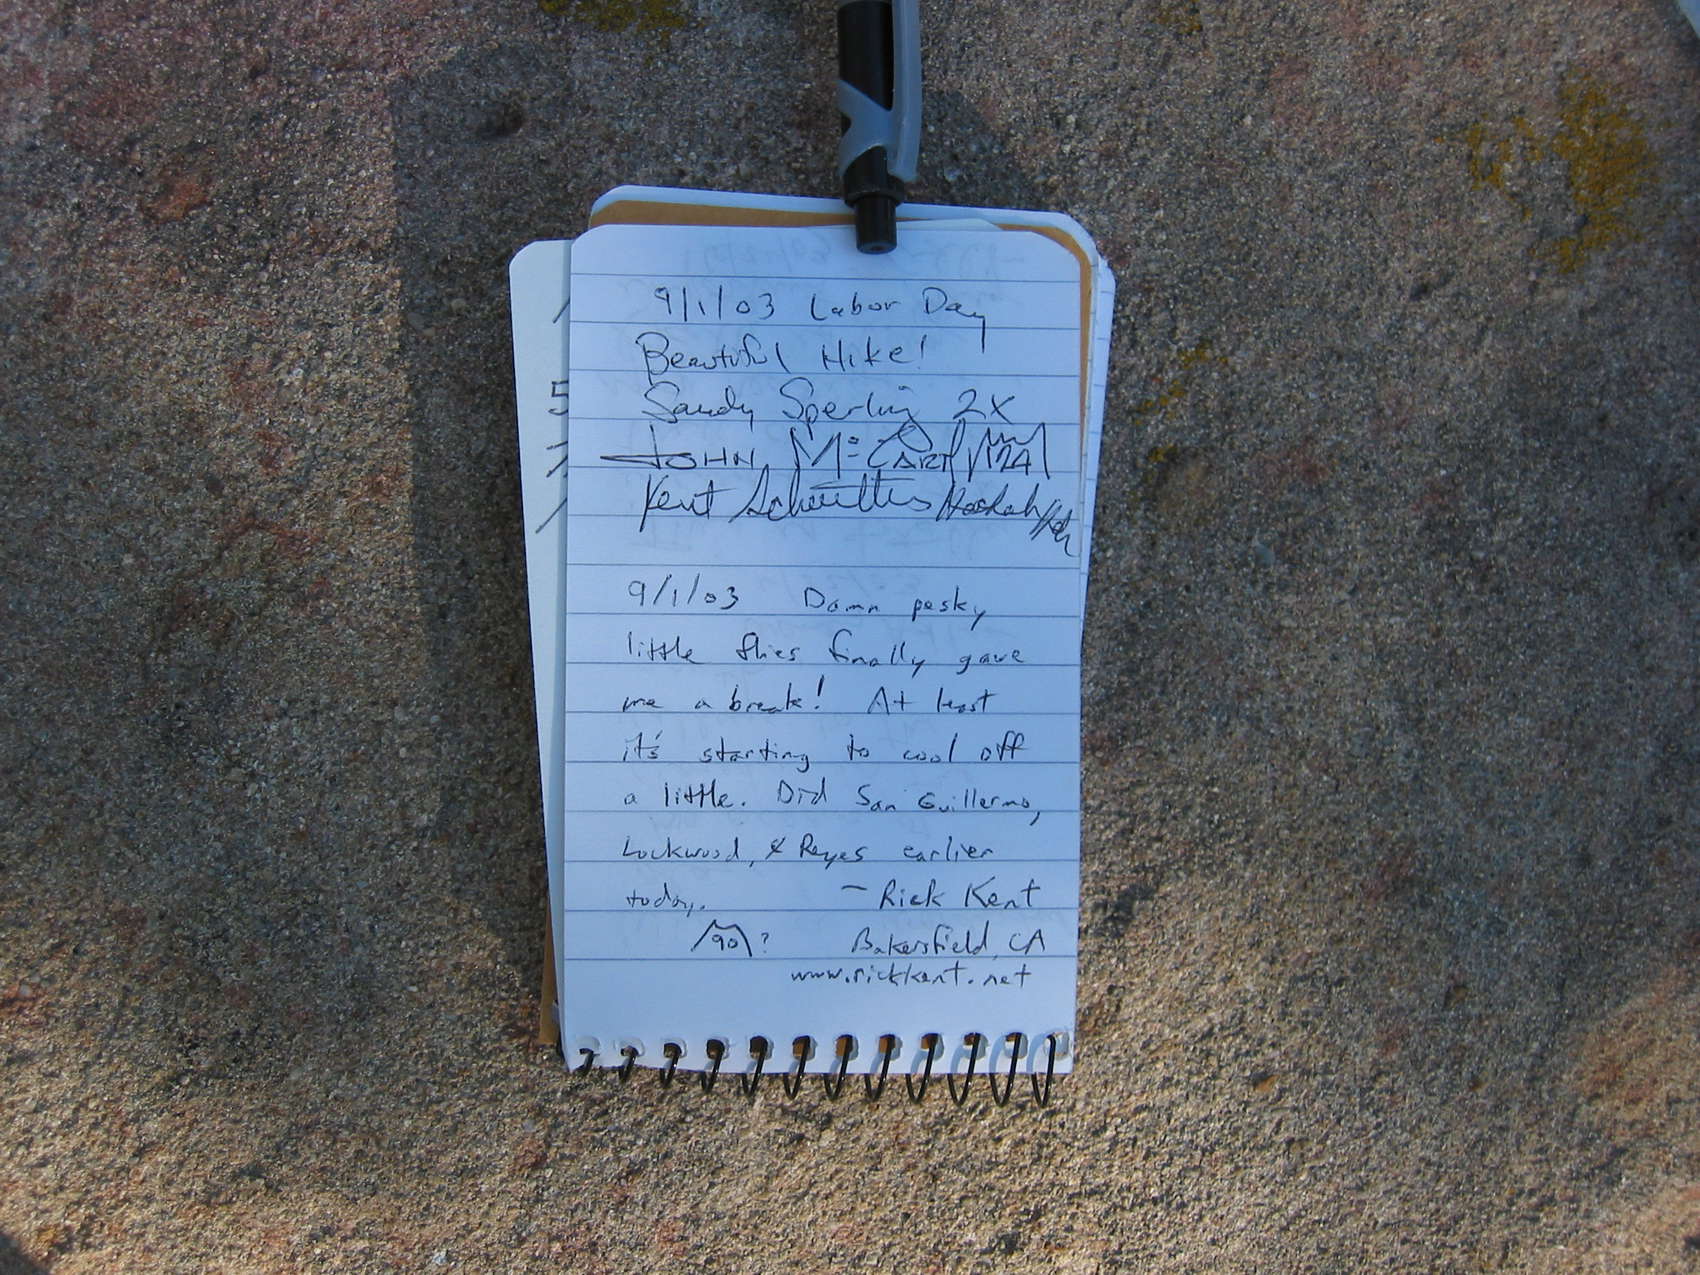 9/1/03 Labor Day
Beautiful Hike!
Sandy Sperling 2X
JOHN
Kent
9/1/03 Damn pesky
little flies finally gave
me a break! At least
it's starting to cool off
a little. Did San Guillermo,
Lockwood, & Reyes earlier
today. – Rick Kent
90 ? Bakersfield, CA
www.rickkent.net
5